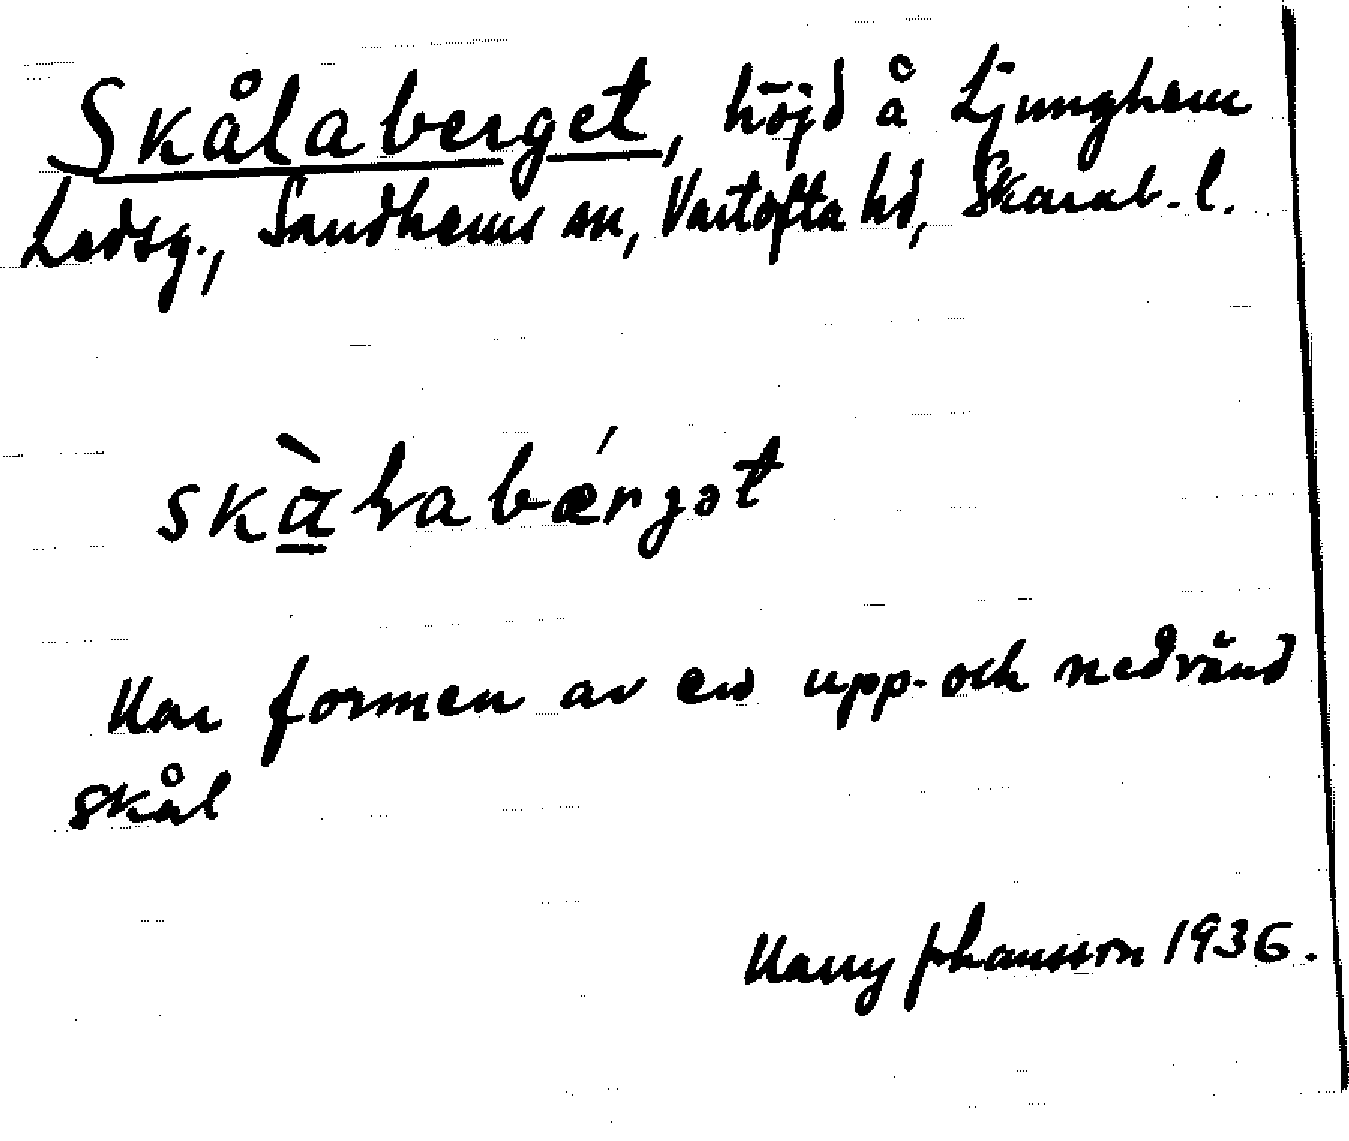 Skålaberget, höjd å Ljunghem
Ledsg., Sandhems sn, Vartofta hd, Skarab. l.
skàlabærgət
Har formen av en upp- och nedvänd
skål
Harry Johansson 1936.